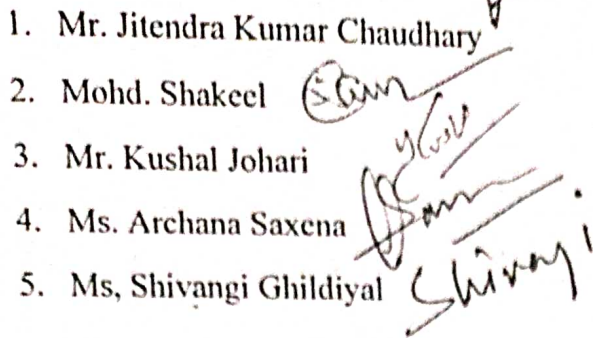 1. Mr. Jitendra Kumar Chaudhary
2. Mohd. Shakeel
3. Mr. Kushal Johari
4. Ms. Archana Saxena
5. Ms, Shivangi Ghildiyal Shivangi